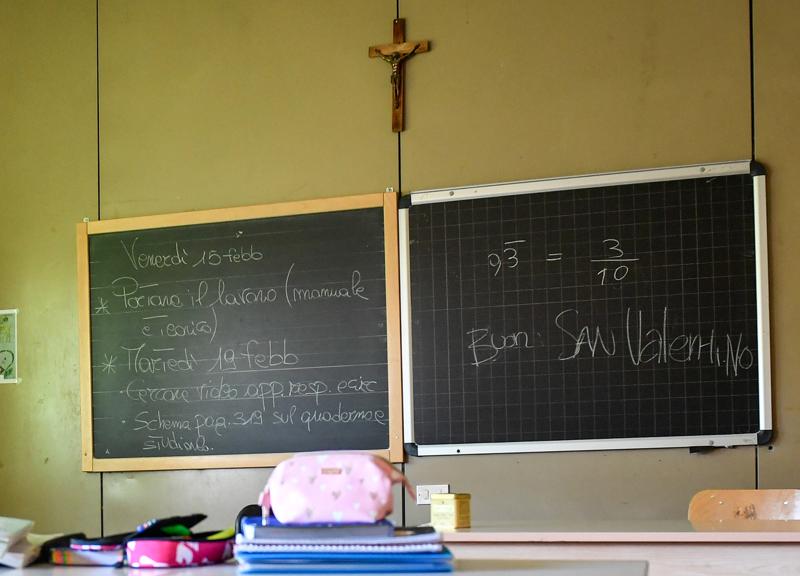 Venerdì 15 febb
* Portare il lavoro (manuale
e teorico)
* Martedì 19 febb
· Cercare video app. resp. e circ
· Schema pag. 319 sul quaderno e
studiare.
9,3̅ = 3/10
Buon San Valentino